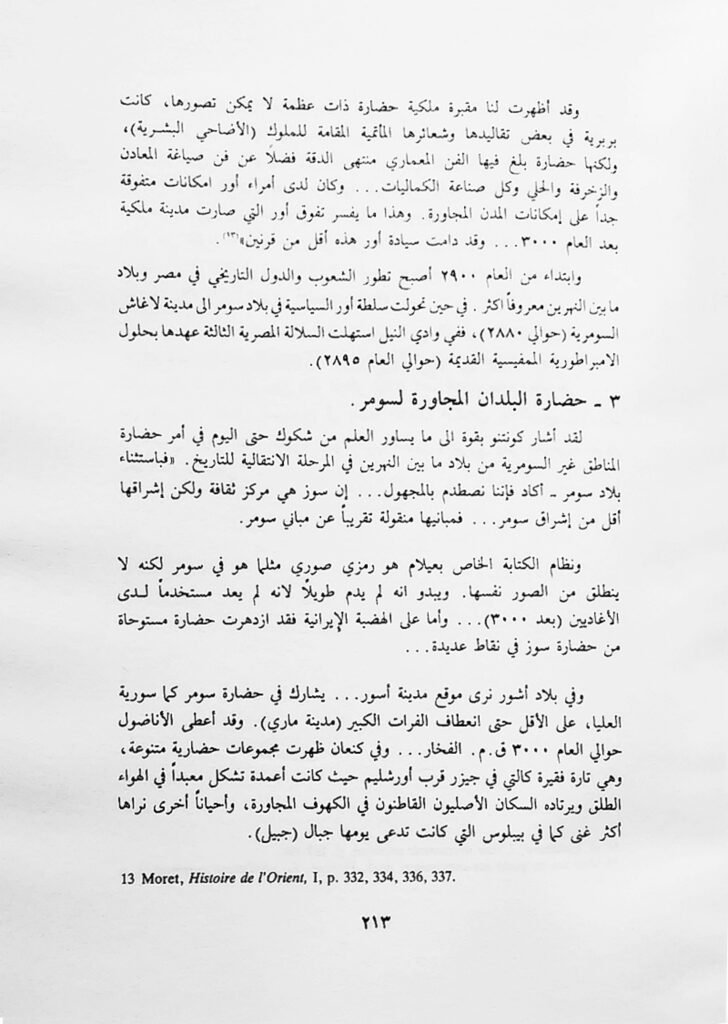 وقد أظهرت لنا مقبرة ملكية حضارة ذات عظمة لا يمكن تصورها، كانت
بربرية في بعض تقاليدها وشعائرها المأتمية المقامة للملوك (الأضاحي البشرية)،
ولكنها حضارة بلغ فيها الفن المعماري منتهى الدقة فضلًا عن فن صياغة المعادن
والزخرفة والحلي وكل صناعة الكماليات... وكان لدى أمراء أور امكانات متفوقة
جداً على إمكانات المدن المجاورة. وهذا ما يفسر تفوق أور التي صارت مدينة ملكية
بعد العام ٣٠٠٠... وقد دامت سيادة أور هذه أقل من قرنين»(١٣).
وابتداء من العام ٢٩٠٠ أصبح تطور الشعوب والدول التاريخي في مصر وبلاد
ما بين النهرين معروفاً اكثر. في حين تحولت سلطة أور السياسية في بلاد سومر الى مدينة لاغاش
السومرية (حوالي ٢٨٨٠)، ففي وادي النيل استهلت السلالة المصرية الثالثة عهدها بحلول
الامبراطورية الممفيسية القديمة (حوالي العام ٢٨٩٥).
٣ ـ حضارة البلدان المجاورة لسومر.
لقد أشار كونتنو بقوة الى ما يساور العلم من شكوك حتى اليوم في أمر حضارة
المناطق غير السومرية من بلاد ما بين النهرين في المرحلة الانتقالية للتاريخ. «فباستثناء
بلاد سومر ـ أكاد فإننا نصطدم بالمجهول... إن سوز هي مركز ثقافة ولكن إشراقها
أقل من إشراق سومر... فمبانيها منقولة تقريباً عن مباني سومر.
ونظام الكتابة الخاص بعيلام هو رمزي صوري مثلما هو في سومر لكنه لا
ينطلق من الصور نفسها. ويبدو انه لم يدم طويلًا لانه لم يعد مستخدماً لـدى
الأغاديين (بعد ٣٠٠٠)... وأما على الهضبة الإيرانية فقد ازدهرت حضارة مستوحاة
من حضارة سوز في نقاط عديدة...
وفي بلاد أشور نرى موقع مدينة أسور... يشارك في حضارة سومر كما سورية
العليا، على الأقل حتى انعطاف الفرات الكبير (مدينة ماري). وقد أعطى الأناضول
حوالي العام ٣٠٠٠ ق.م. الفخار... وفي كنعان ظهرت مجموعات حضارية متنوعة،
وهي تارة فقيرة كالتي في جيزر قرب أورشليم حيث كانت أعمدة تشكل معبداً في الهواء
الطلق ويرتاده السكان الأصليون القاطنون في الكهوف المجاورة، وأحياناً أخرى نراها
أكثر غنى كما في بيبلوس التي كانت تدعى يومها جبال (جبيل).
13 Moret, Histoire de l'Orient, I, p. 332, 334, 336, 337.
٢١٣